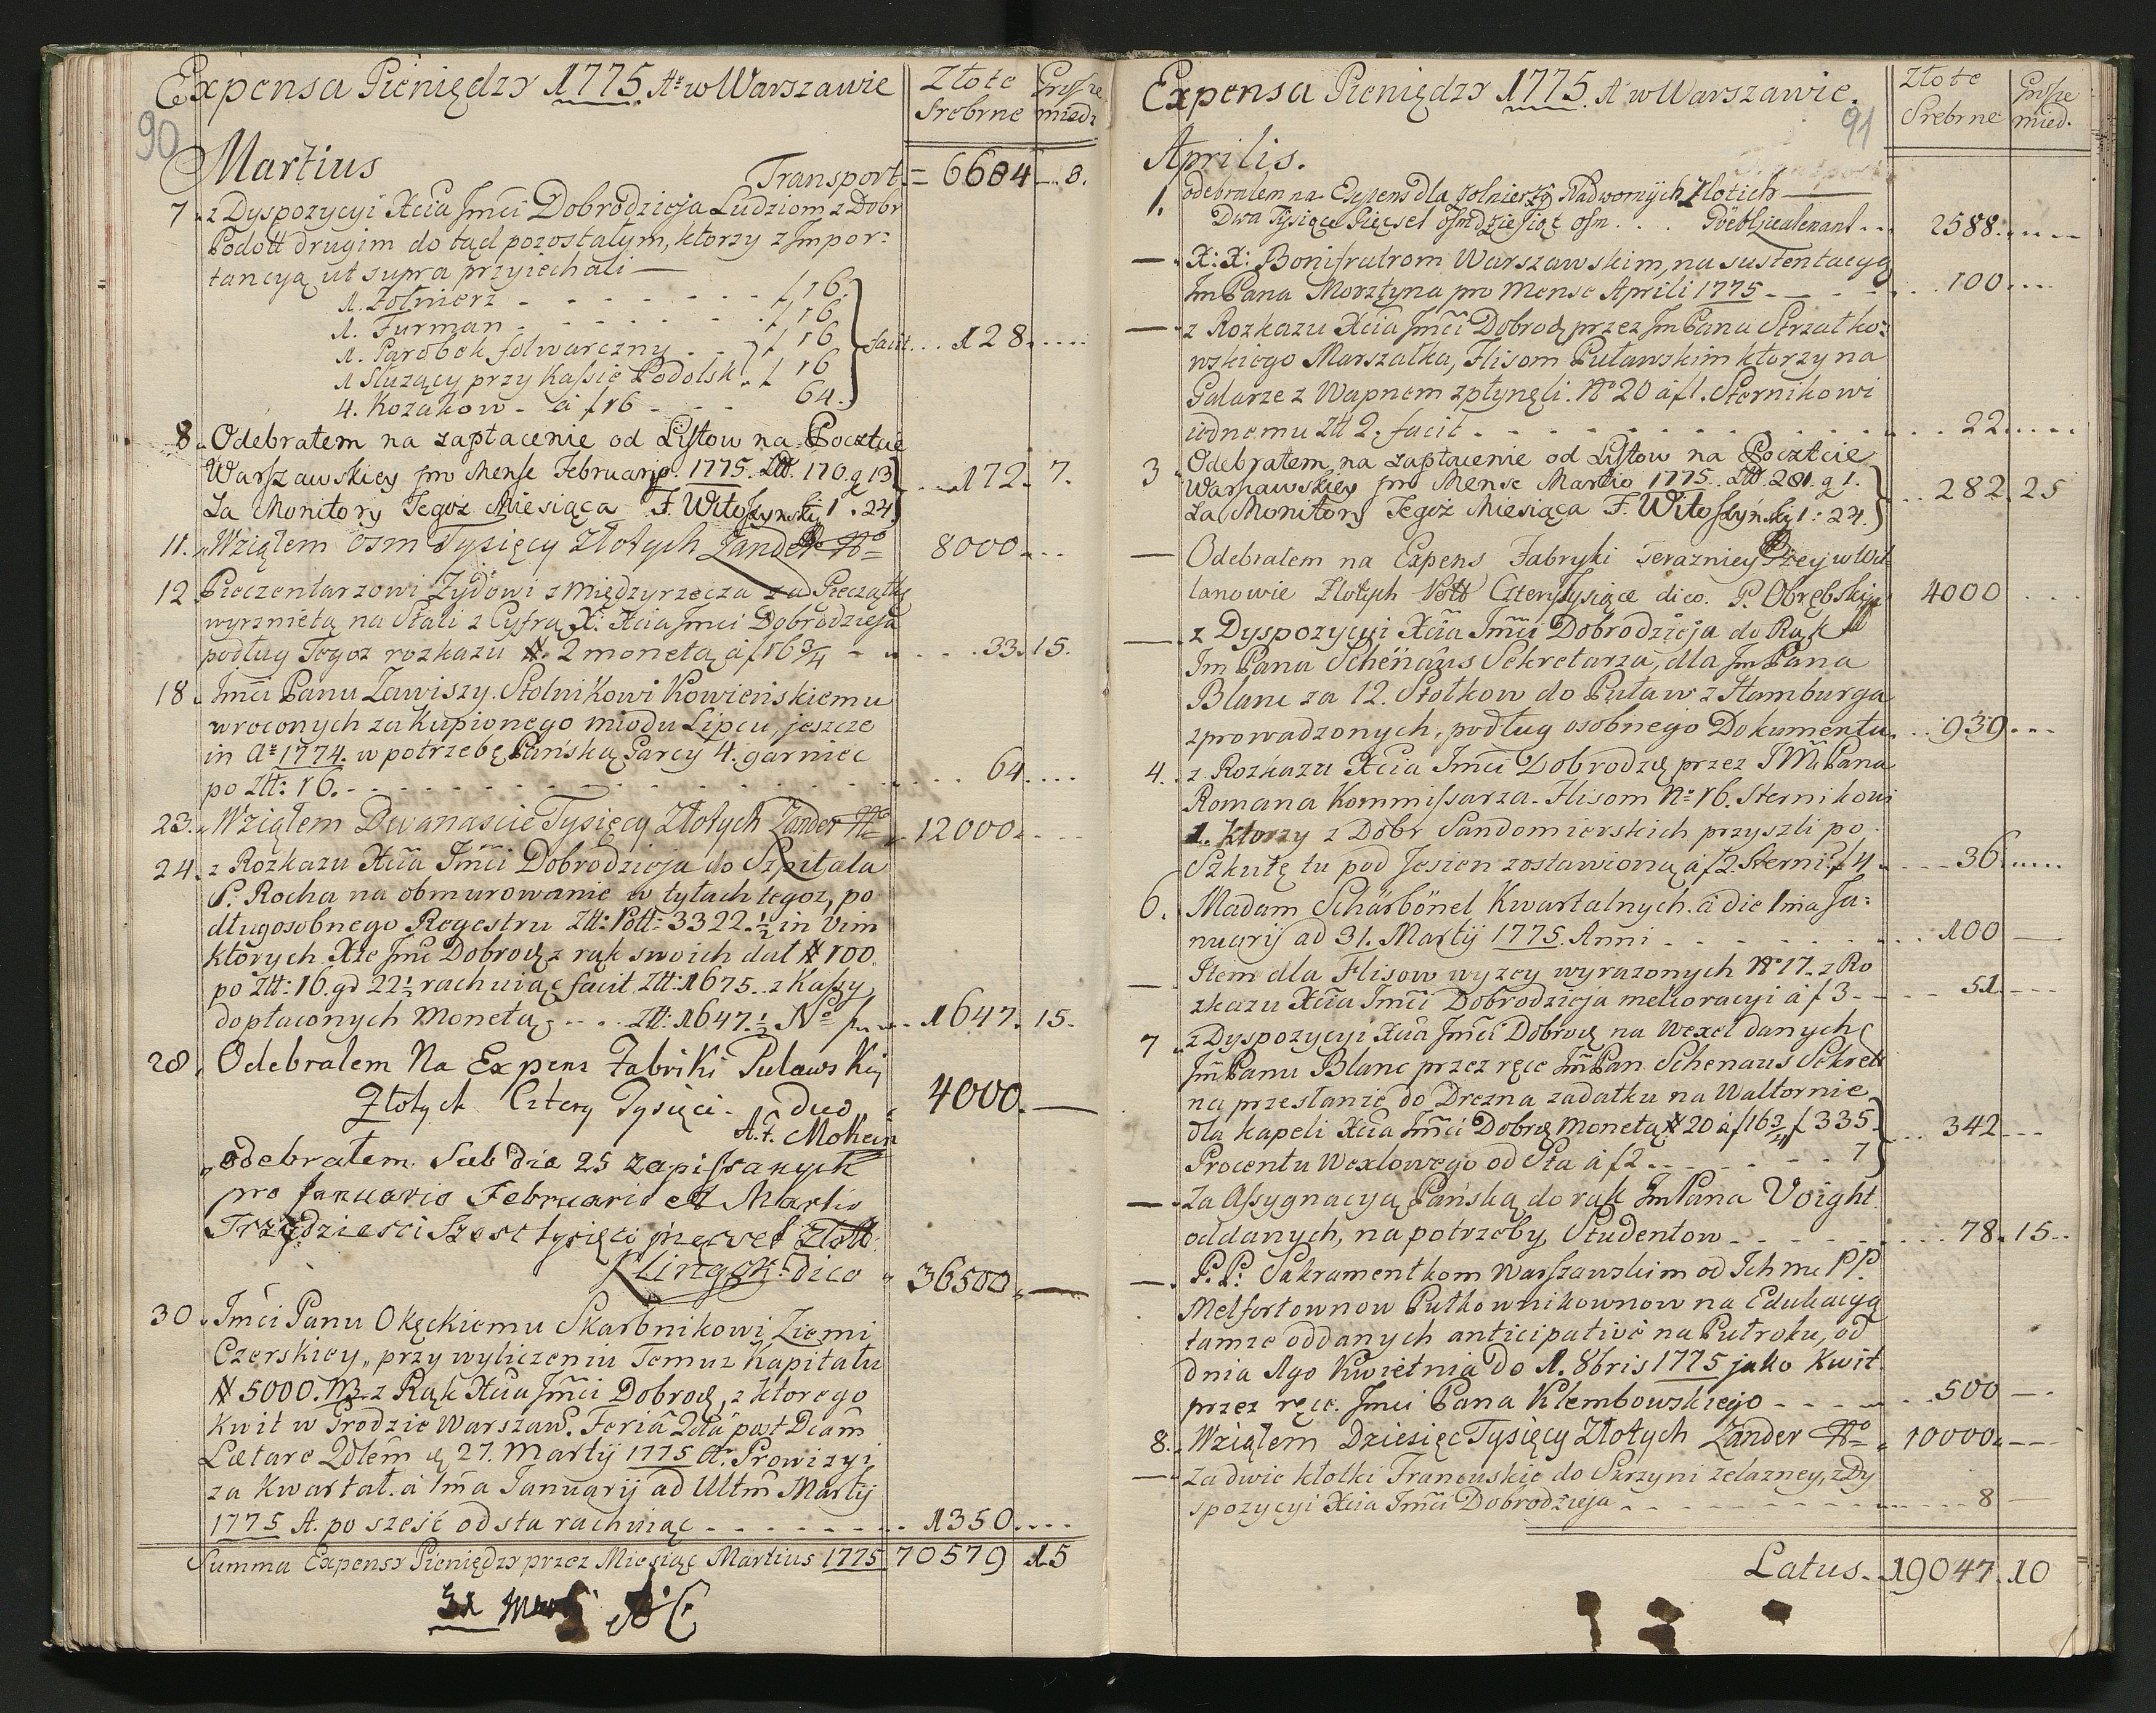 Expensa Pieniędzy 1775 Aº w Warszawie
Złote Srebrne
Grosze miedz
90
Martius
Transport = 6684 8.
7. z Dyspozycyi Xcia Jmci Dobrodzieja Ludziom z Dobr
Podolt drugim do tąd pozostałym, ktorzy z Impor:
tancyą ut supra przyiechali —
1. Zołnierz - - - f 16.
1. Furman - - - f 16
1. Parobek folwarczny - - f 16
1 Służący przy Kassie Podolsk. f 16
4. Kozakow - à f 16 - - 64.
facit... 128
8. Odebrałem na zapłacenie od Listow na Poczcie
Warszawskiey pro Mense Februario. 1775. Ztt. 170. g 13
Za Monitory Tegoż Miesiąca F. Witoszynski 1. 24
172. 7.
11. Wziąłem Osm Tysięcy Złotych Zander
8000
12 Pieczentarzowi Zydowi z Międzyrzecza za Pieczątkę
wyrznietą na Stali z Cyfrą X: Xcia Jmci Dobrodzieja
podług Tegoz rozkazu # 2 monetą à f 16 3/4 - - 33. 15.
18. Jmci Panu Zawiszy. Stolnikowi Kowieńskiemu
wroconych za kupionego miodu Lipcu, jeszcze
in Aº 1774. w potrzebę Panską Garcy 4. garniec
po Ztt: 16. - - - 64
23. Wziąłem Dwanascie Tysięcy Złotych Zander
12000
24. z Rozkazu Xcia Jmci Dobrodzieja do Szpitala
S. Rocha na obmurowanie w tyłach tegoz, po
dług osobnego Regestru Ztt: Polt: 3322. 1/2 in vim
ktorych Xże Jmc Dobrodz z rąk swoich dał # 100.
po Ztt: 16. gr 22 1/2 rachuiąc facit Ztt: 1675. z Kassy
dopłaconych Monetą - - Ztt: 1647. 1/2 Nº
1647. 15.
28. Odebralem Na Expens Fabriki Pulawskij
Złotych Cztery Tysięci - dico
4000. —
odebrałem. Sub die 25 zapissanych
pro Januario Februario et Martio
Trzydziesci Szesc tysięci pięcset Złott
dico 36500. —
30. Jmci Panu Okęckiemu Skarbnikowi Ziemi
Czerskiey, przy wyliczeniu Temuz Kapitału
# 5000. z Rąk Xcia Jmci Dobrodz, z ktorego
Kwit w Grodzie Warszaw. Feria 2da post Dcam
Lætare 27. Martij 1775 A. Prowizyi
za Kwartał. à 1ma Januarij ad Ultm Martij
1775 A. po sześć od sta rachuiąc - - - 1350
Summa Expensy Pieniędzy przez Miesiąc Martius 1775 70579 15
Expensa Pieniędzy 1775. A w Warszawie.
Złote Srebrne
Grosze mied.
91
Aprilis.
1. odebralem na Expens dla Zolnierzy Nadwornych Zlotich —
Dwa Tysiące Pięcset osmdziesiąt osm . . .
2588
— X: X: Bonifratrom Warszawskim, na sustentacyą
Im Pana Morsztyna pro Mense Aprili 1775 - - 100
— z Rozkazu Xcia Jmci Dobrodz przez Jm Pana Strzałko:
wskiego Marszałka, Flisom Puławskim ktorzy na
Galarze z Wapnem zpłynęli. Nº 20 à f 1. Sternikowi
iednemu Ztt 2. facit - - - 22
3 Odebrałem na zapłacenie od Listow na Poczcie
Warszawskiey pro Mense Martio 1775. Ztt. 281. g 1.
Za Monitory Tegoż Miesiąca F. Witoszynski 1: 24.
282. 25
— Odebrałem na Expens Fabryki Terazniey Szey w Wil
lanowie Złotych Cztery Tysiące dico. P. Obrębski
4000
— z Dyspozycyi Xcia Jmci Dobrodzieja do Rąk
Jm Pana Schönaus Sekretarza, dla Jm Pana
Blanc za 12. Stołkow do Puław z Hamburga
zprowadzonych, podług osobnego Dokumentu. 939
4. z Rozkazu Xcia Jmci Dobrodz przez JMci Pana
Romana Kommissarza. Flisom Nº 16. Sternikowi
1. ktorzy z Dobr Sandomierskich przyszli po
Szkutę tu pod Jesien zostawioną à f 2. Sterni: f 4. - 36
6. Madam Schärbönel Kwartalnych. à die 1ma Ja:
nuarij ad 31. Martij 1775. Anni - - - 100 —
— Item dla Flisow wyzey wyrazonych Nº 17. z Ro
zkazu Xcia Jmci Dobrodzieja melioracyi à f 3 - - 51.
7 z Dyspozycyi Xcia Jmci Dobrodz na Wexel danych
Jm Panu Blanc przez ręce Jm Pan Schenaus Sekret
na przesłanie do Drezna zadatku na Waltornie
dla kapeli Xcia Jmci Dobrodz Monetą # 20 à f 16 3/4 f 335
Procentu Wexlowego od Sta à f 2 - - - 7
342
— Za Assygnacyą Pańską do rąk Jm Pana Voight
oddanych, na potrzeby Studentow - - - 78. 15
— P. P. Sakramentkom Warszawskim od Ich mc PP.
Melfortownow Pułkownikownow na Edukacyą
tamze oddanych anticipativè na Puł roku, od
dnia 1go Kwietnia do 1. 8bris 1775 jako Kwit
przez ręce Jmci Pana Klembowskiego - - - 500 —
8. Wziąłem Dziesięc Tysięcy Złotych Zander
10000 —
— Za dwie kłotki Francuskie do Skrzyni zelazney, z Dy
spozycyi Xcia Jmci Dobrodzieja - - - 8 —
Latus. 19047. 10